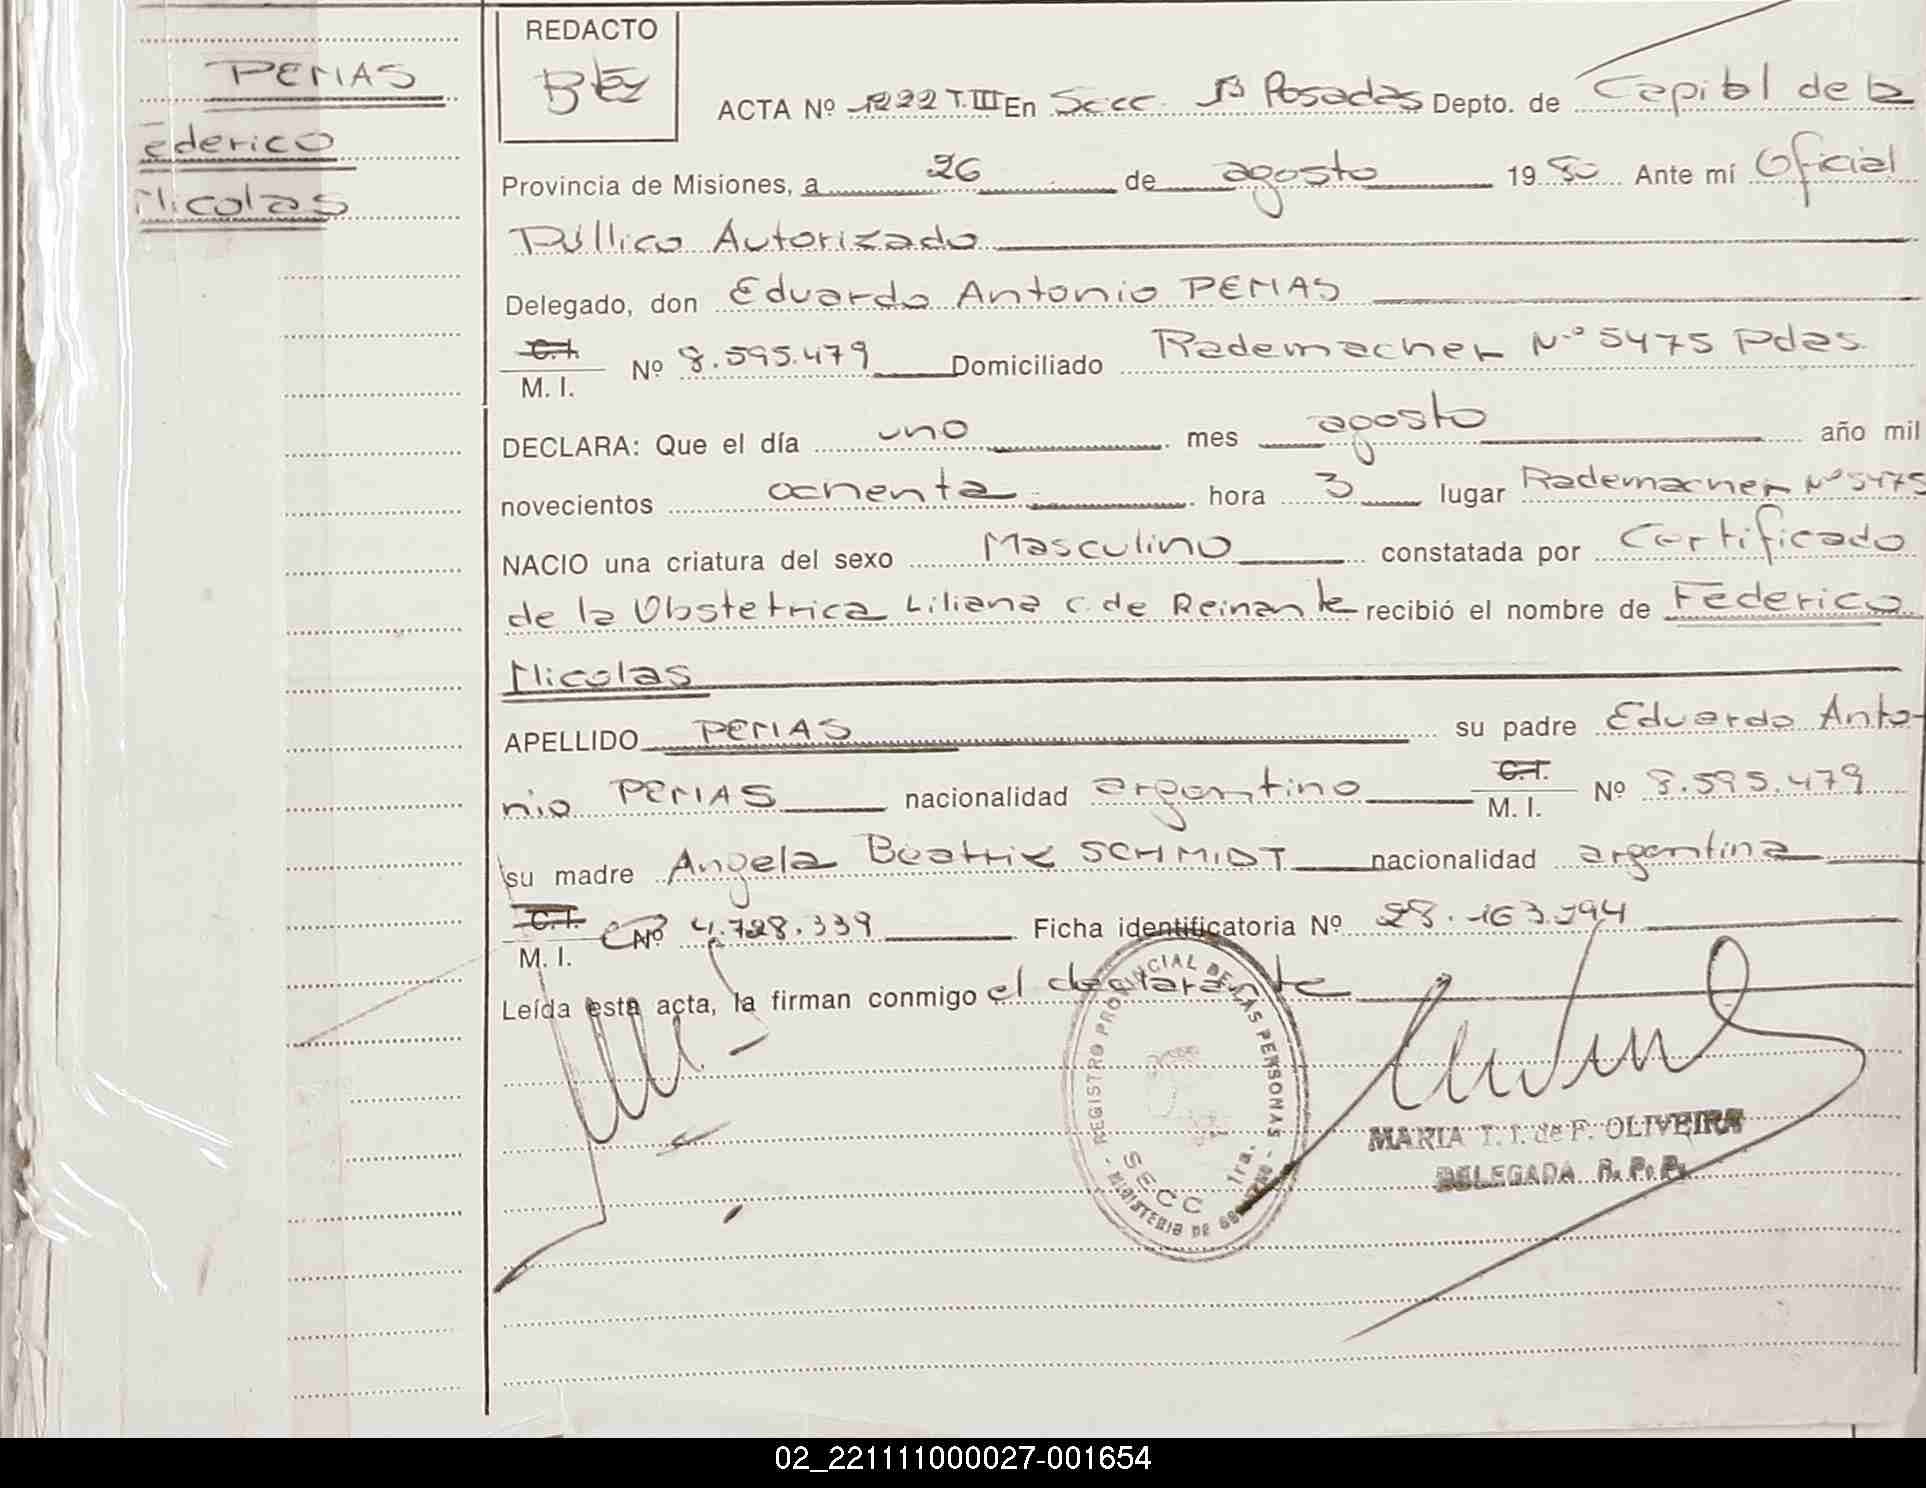 REDACTO
PEMAS
Federico
Nicolas
ACTA Nº 1222 T.III En Secc. 1ª Posadas Depto. de Capital de la
Provincia de Misiones, a 26 de agosto 1980 Ante mí Oficial
Público Autorizado
Delegado, don Eduardo Antonio PEMAS
C.I.
M. I. Nº 8.595.479 Domiciliado Rademacher Nº 5475 Pdas.
DECLARA: Que el día uno mes agosto año mil
novecientos ochenta hora 3 lugar Rademacher Nº 5475
NACIO una criatura del sexo Masculino constatada por Certificado
de la Obstetrica Liliana C. de Reinante recibió el nombre de Federico
Nicolas
APELLIDO PEMAS su padre Eduardo Anto-
nio PEMAS nacionalidad argentino C.I. M. I. Nº 8.595.479
su madre Angela Beatriz SCHMIDT nacionalidad argentina
C.I.
M. I. Nº 4.728.339 Ficha identificatoria Nº 28.163.994
Leída esta acta, la firman conmigo el declarante
REGISTRO PROVINCIAL DE LAS PERSONAS
SECC 1ra.
MINISTERIO DE GOBIERNO
MARIA T. I. de F. OLIVEIRA
DELEGADA R. P. P.
02_221111000027-001654